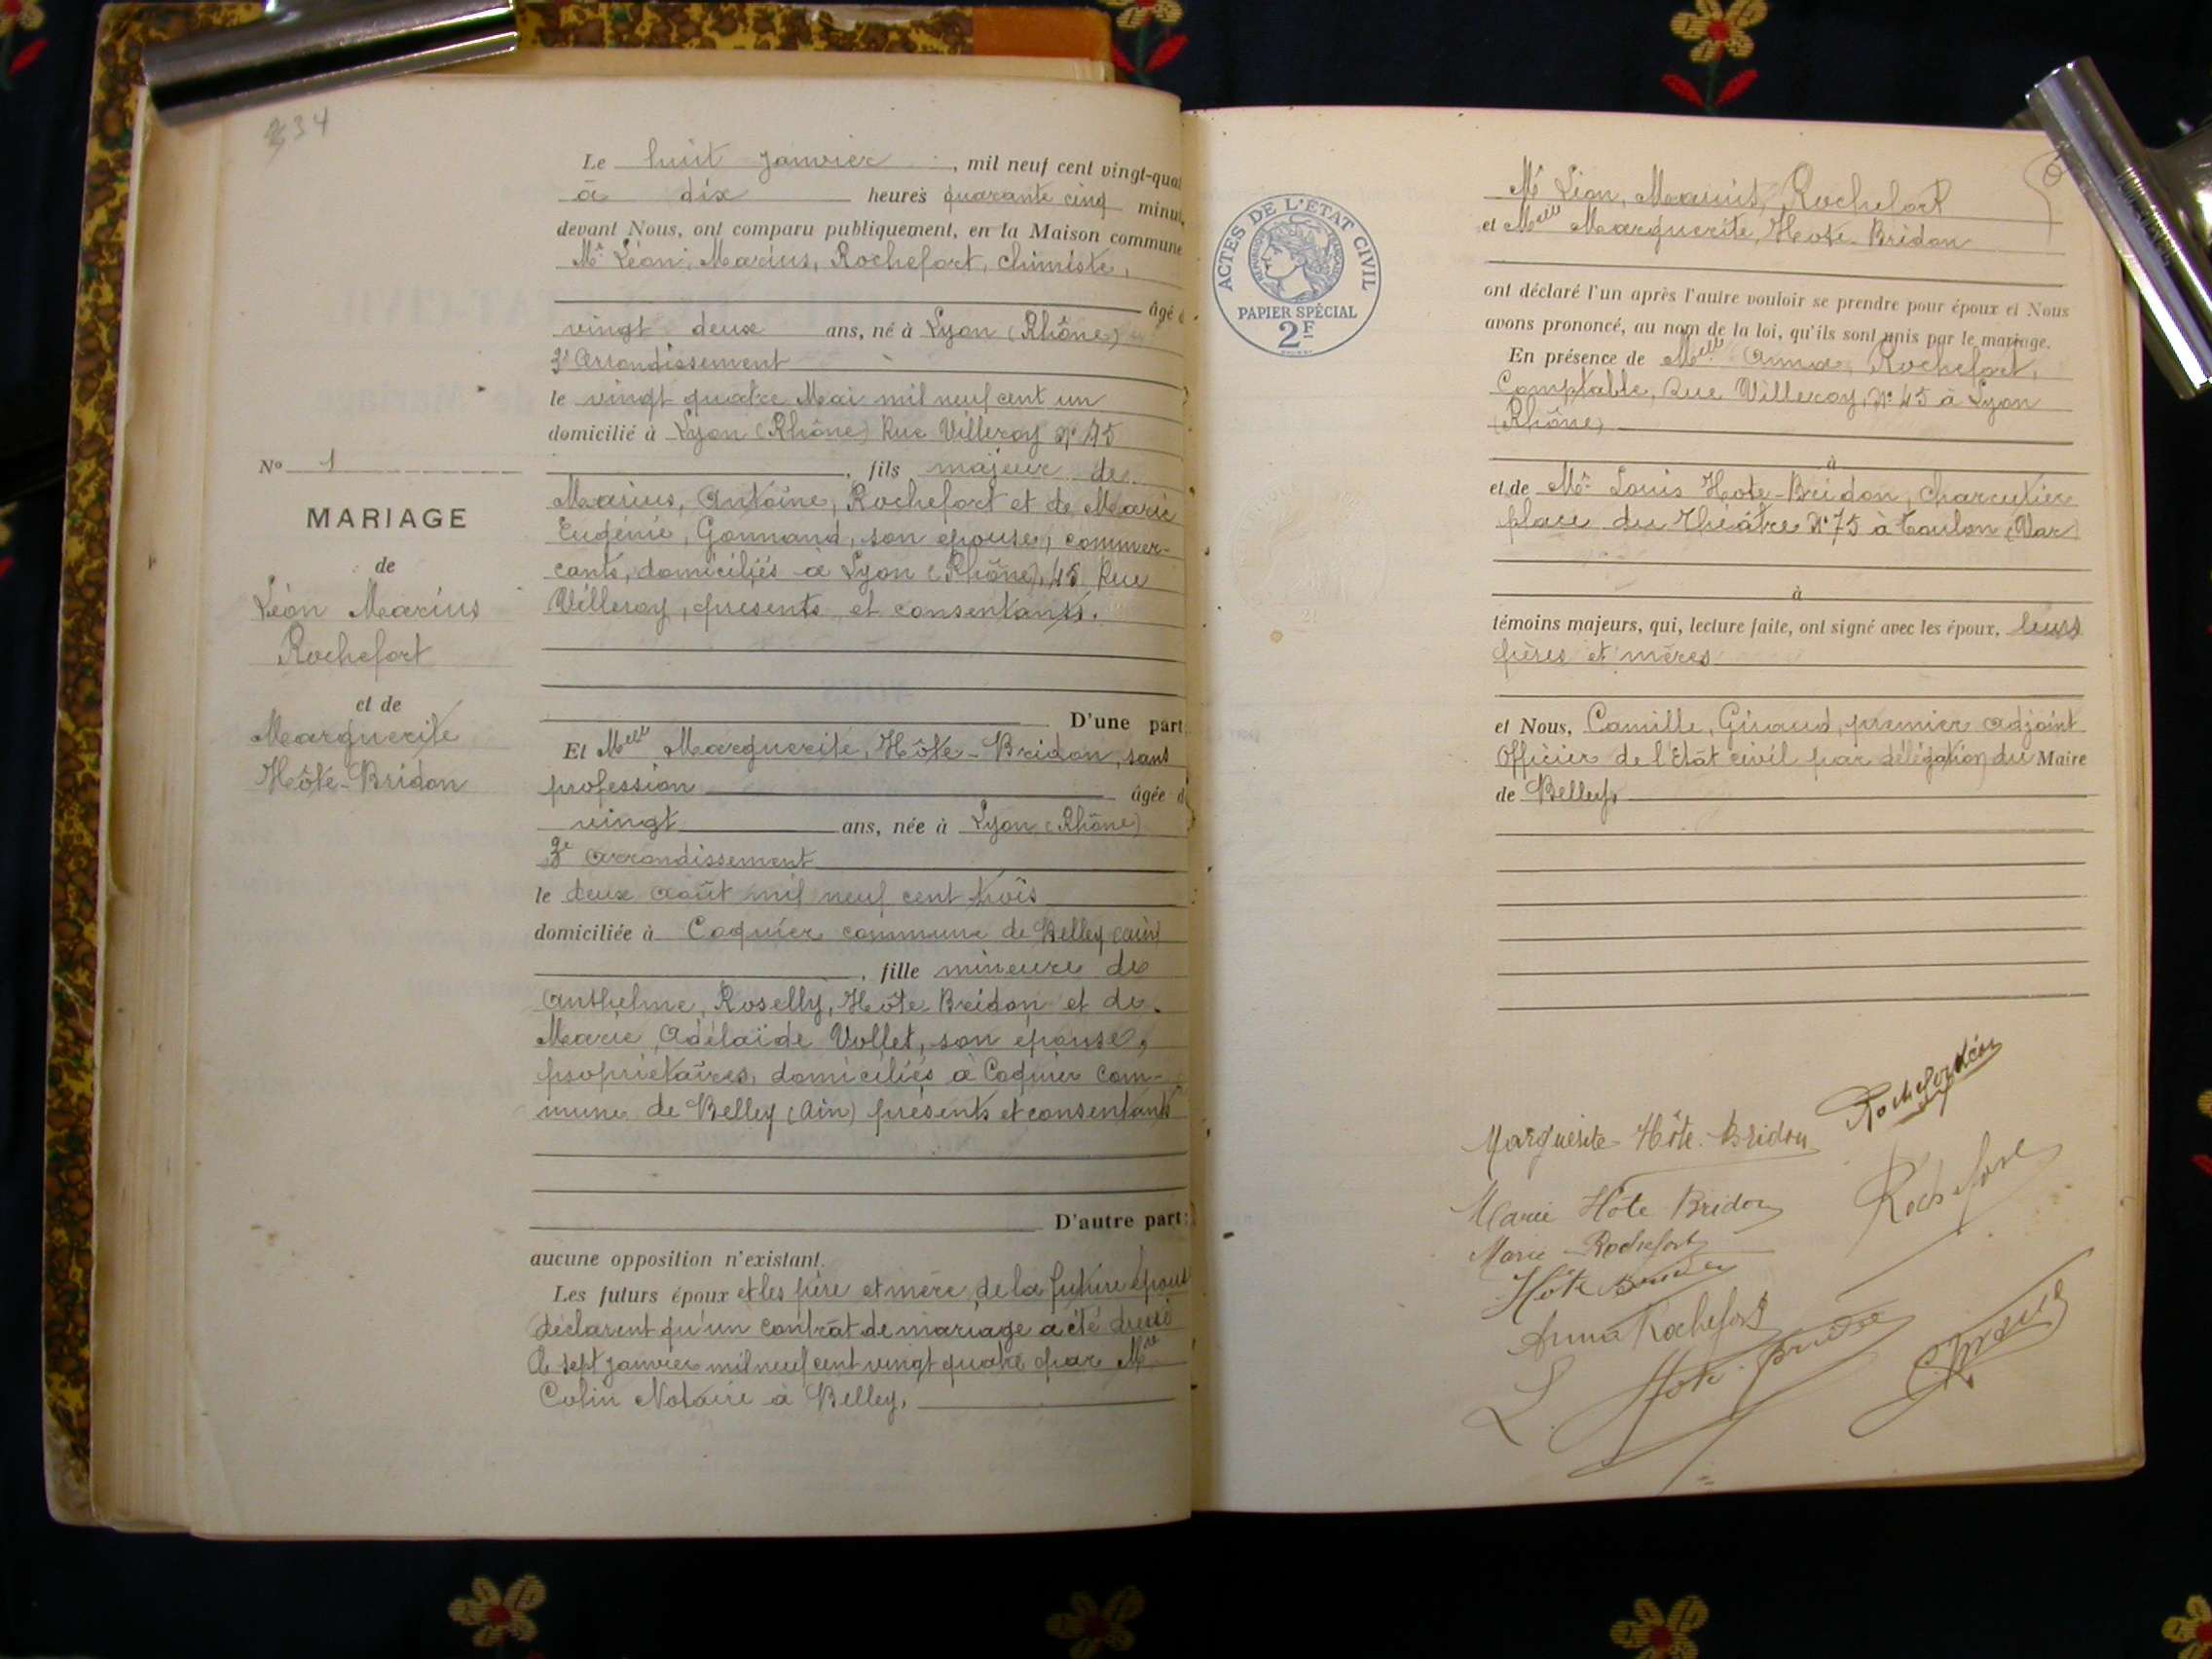 234
Le huit janvier, mil neuf cent vingt-quat
à dix heures quarante cinq minut
devant Nous, ont comparu publiquement, en la Maison commune
Mr Léon, Marius, Rochefort, chimiste,
âgé d
vingt deux ans, né à Lyon (Rhône)
3e Arrondissement
le vingt quatre Mai mil neuf cent un
domicilié à Lyon (Rhône) Rue Villeroy No 45
, fils majeur de
Marius, Antoine, Rochefort et de Marie
Eugénie, Gonnand, son epouse, commer-
cants, domiciliés à Lyon (Rhône), 45 Rue
Villeroy, présents et consentants.
D'une part
No 1
MARIAGE
de
Léon Marius
Rochefort
et de
Marguerite
Hôte-Bridon
Et Melle Marguerite, Hôte-Bridon, sans
profession âgée d
vingt ans, née à Lyon (Rhône)
3e arrondissement
le deux août mil neuf cent trois
domiciliée à Coquier commune de Belley (ain)
, fille mineure de
Anthelme, Roselly, Hôte Bridon et de
Marie, Adélaïde Vullet, son épouse,
propriétaires, domiciliés à Coquier com-
mune de Belley (Ain) présents et consentants
D'autre part;
aucune opposition n'existant.
Les futurs époux et les père et mère de la future épouse
déclarent qu'un contrat de mariage a été dressé
le sept janvier mil neuf cent vingt quatre par Me
Colin Notaire à Belley,
ACTES DE L'ÉTAT CIVIL
RÉPUBLIQUE FRANÇAISE
PAPIER SPÉCIAL
2F
Mr Léon, Marius, Rochefort
et Melle Marguerite, Hote-Bridon
ont déclaré l'un après l'autre vouloir se prendre pour époux et Nous
avons prononcé, au nom de la loi, qu'ils sont unis par le mariage.
En présence de Melle Anna, Rochefort,
Comptable, Rue Villeroy, No 45 à Lyon
(Rhône)
à
et de Mr Louis Hote-Bridon, charcutier
place du Théâtre No 75 à Toulon (Var)
à
témoins majeurs, qui, lecture faite, ont signé avec les époux, leurs
pères et mères
et Nous, Camille, Giraud, premier adjoint
Officier de l'Etat civil par délégation du Maire
de Belley,
Rochefort Léon
Marguerite Hôte-Bridon
Rochefort
Marie Hôte Bridon
Marie Rochefort
Hôte Bridon
Anna Rochefort
L. Hote-Bridon
C. Giraud